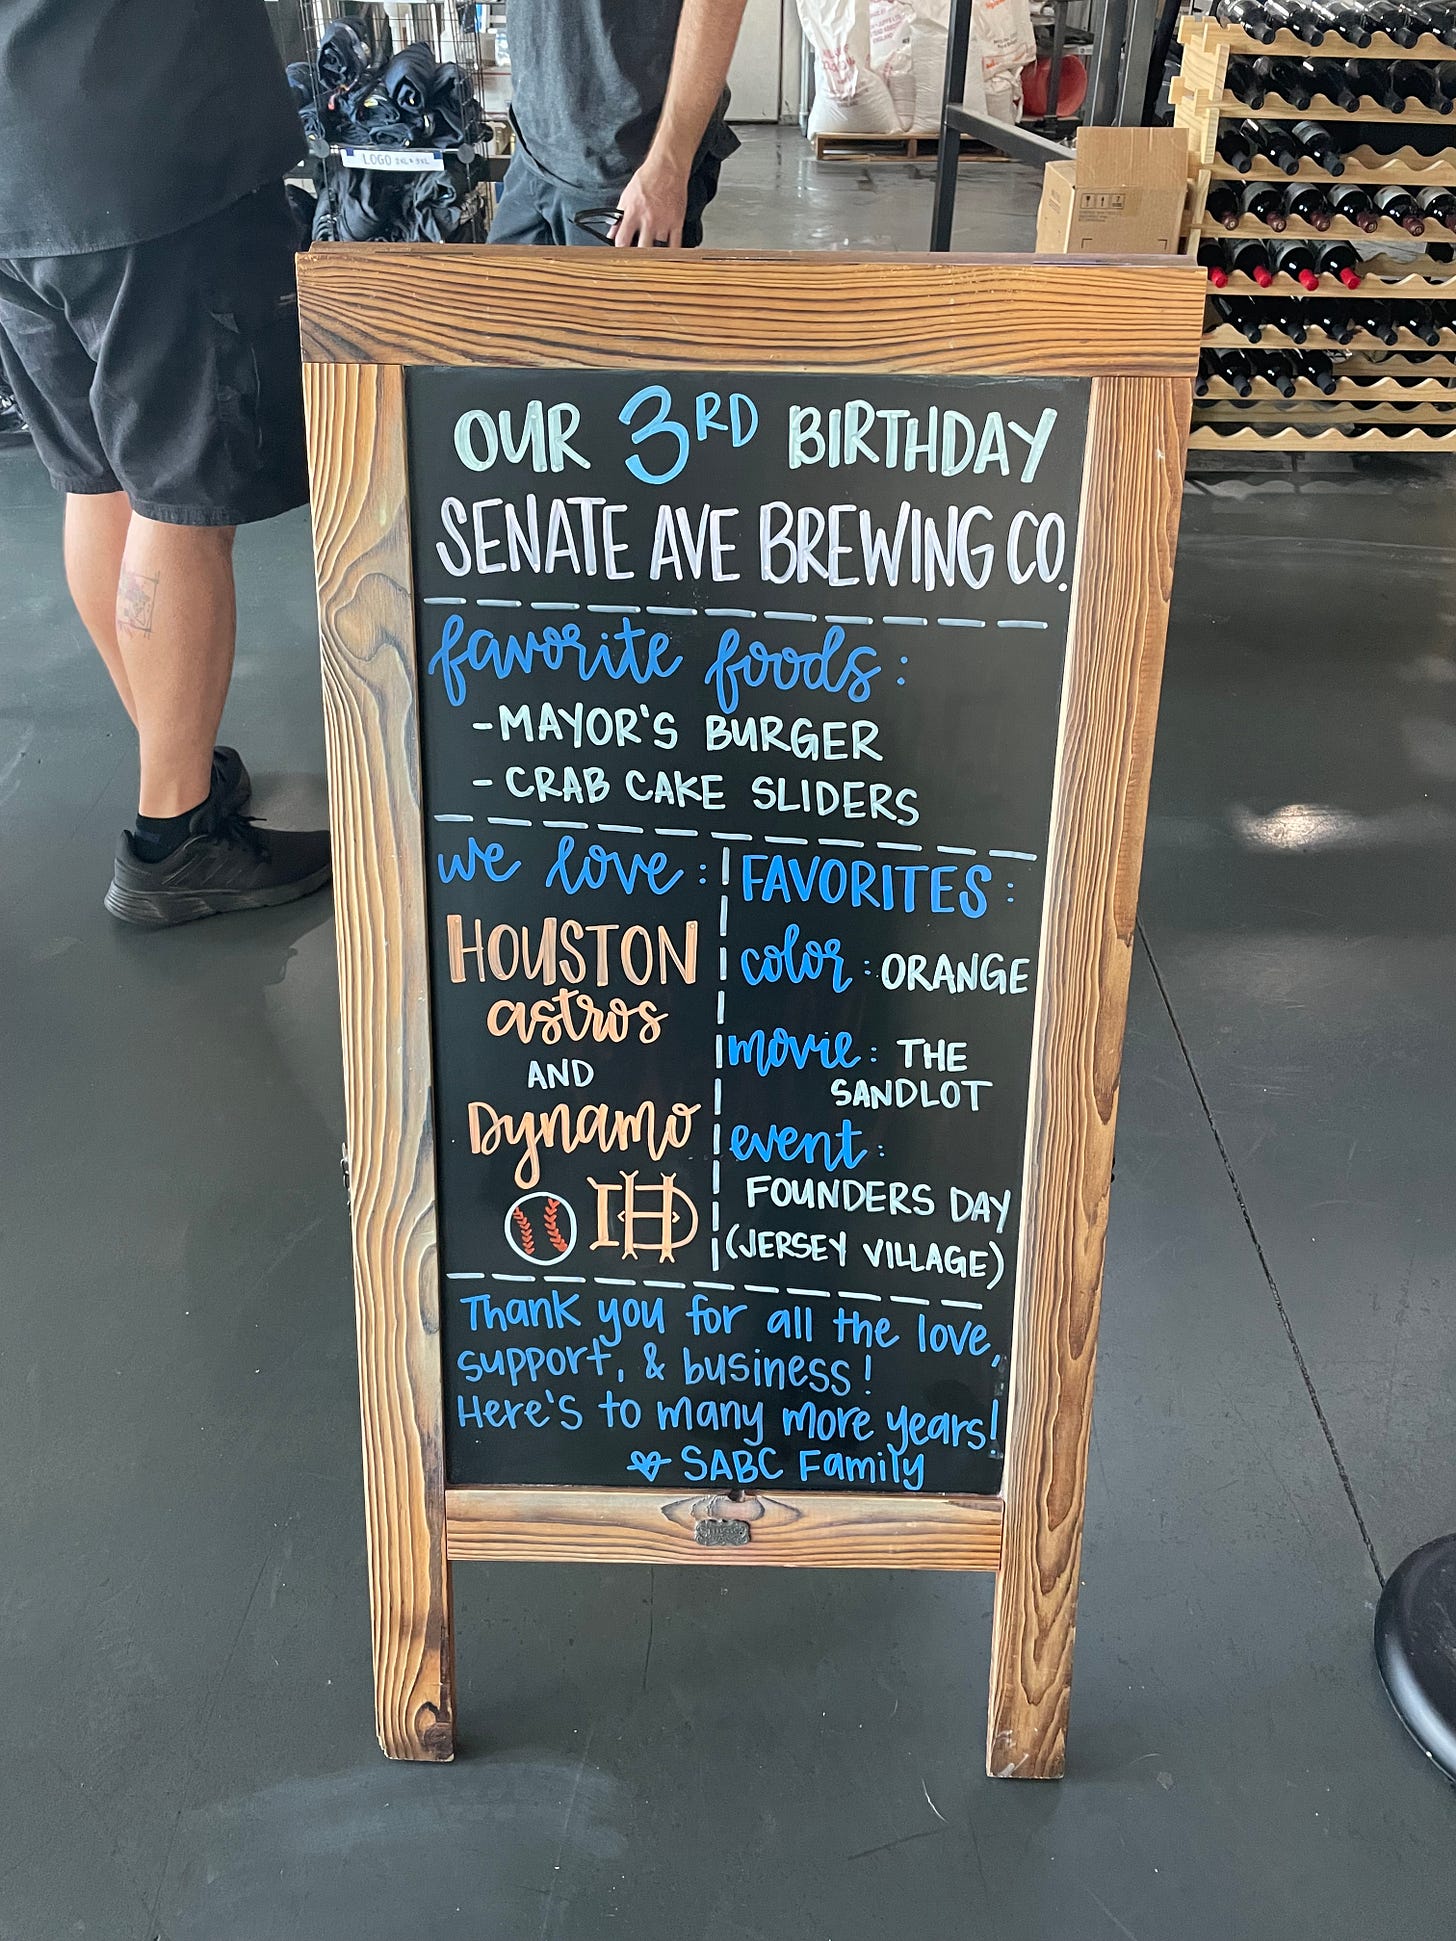 LOGO 2XL & 3XL
OUR 3RD BIRTHDAY
SENATE AVE BREWING CO.
favorite foods:
-MAYOR'S BURGER
-CRAB CAKE SLIDERS
we love:
HOUSTON
astros
AND
Dynamo
HD
FAVORITES:
color: ORANGE
movie: THE
SANDLOT
event:
FOUNDERS DAY
(JERSEY VILLAGE)
Thank you for all the love,
support, & business!
Here's to many more years!
SABC Family